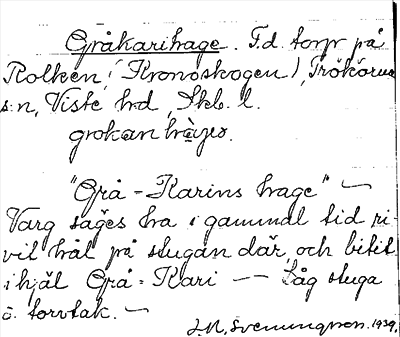 Gråkarihage. F.d. torp på
Rolken, (Kronoskogen), Trökörna
s:n, Viste hd, Skb. l.
grokan hàjəo.
"Grå-Karins hage" —
Varg säges ha i gammal tid ri-
vit hål på stugan där och bitit
ihjäl Grå-Kari — Låg stuga
o. torvtak. —
J.N. Svenningson. 1939.